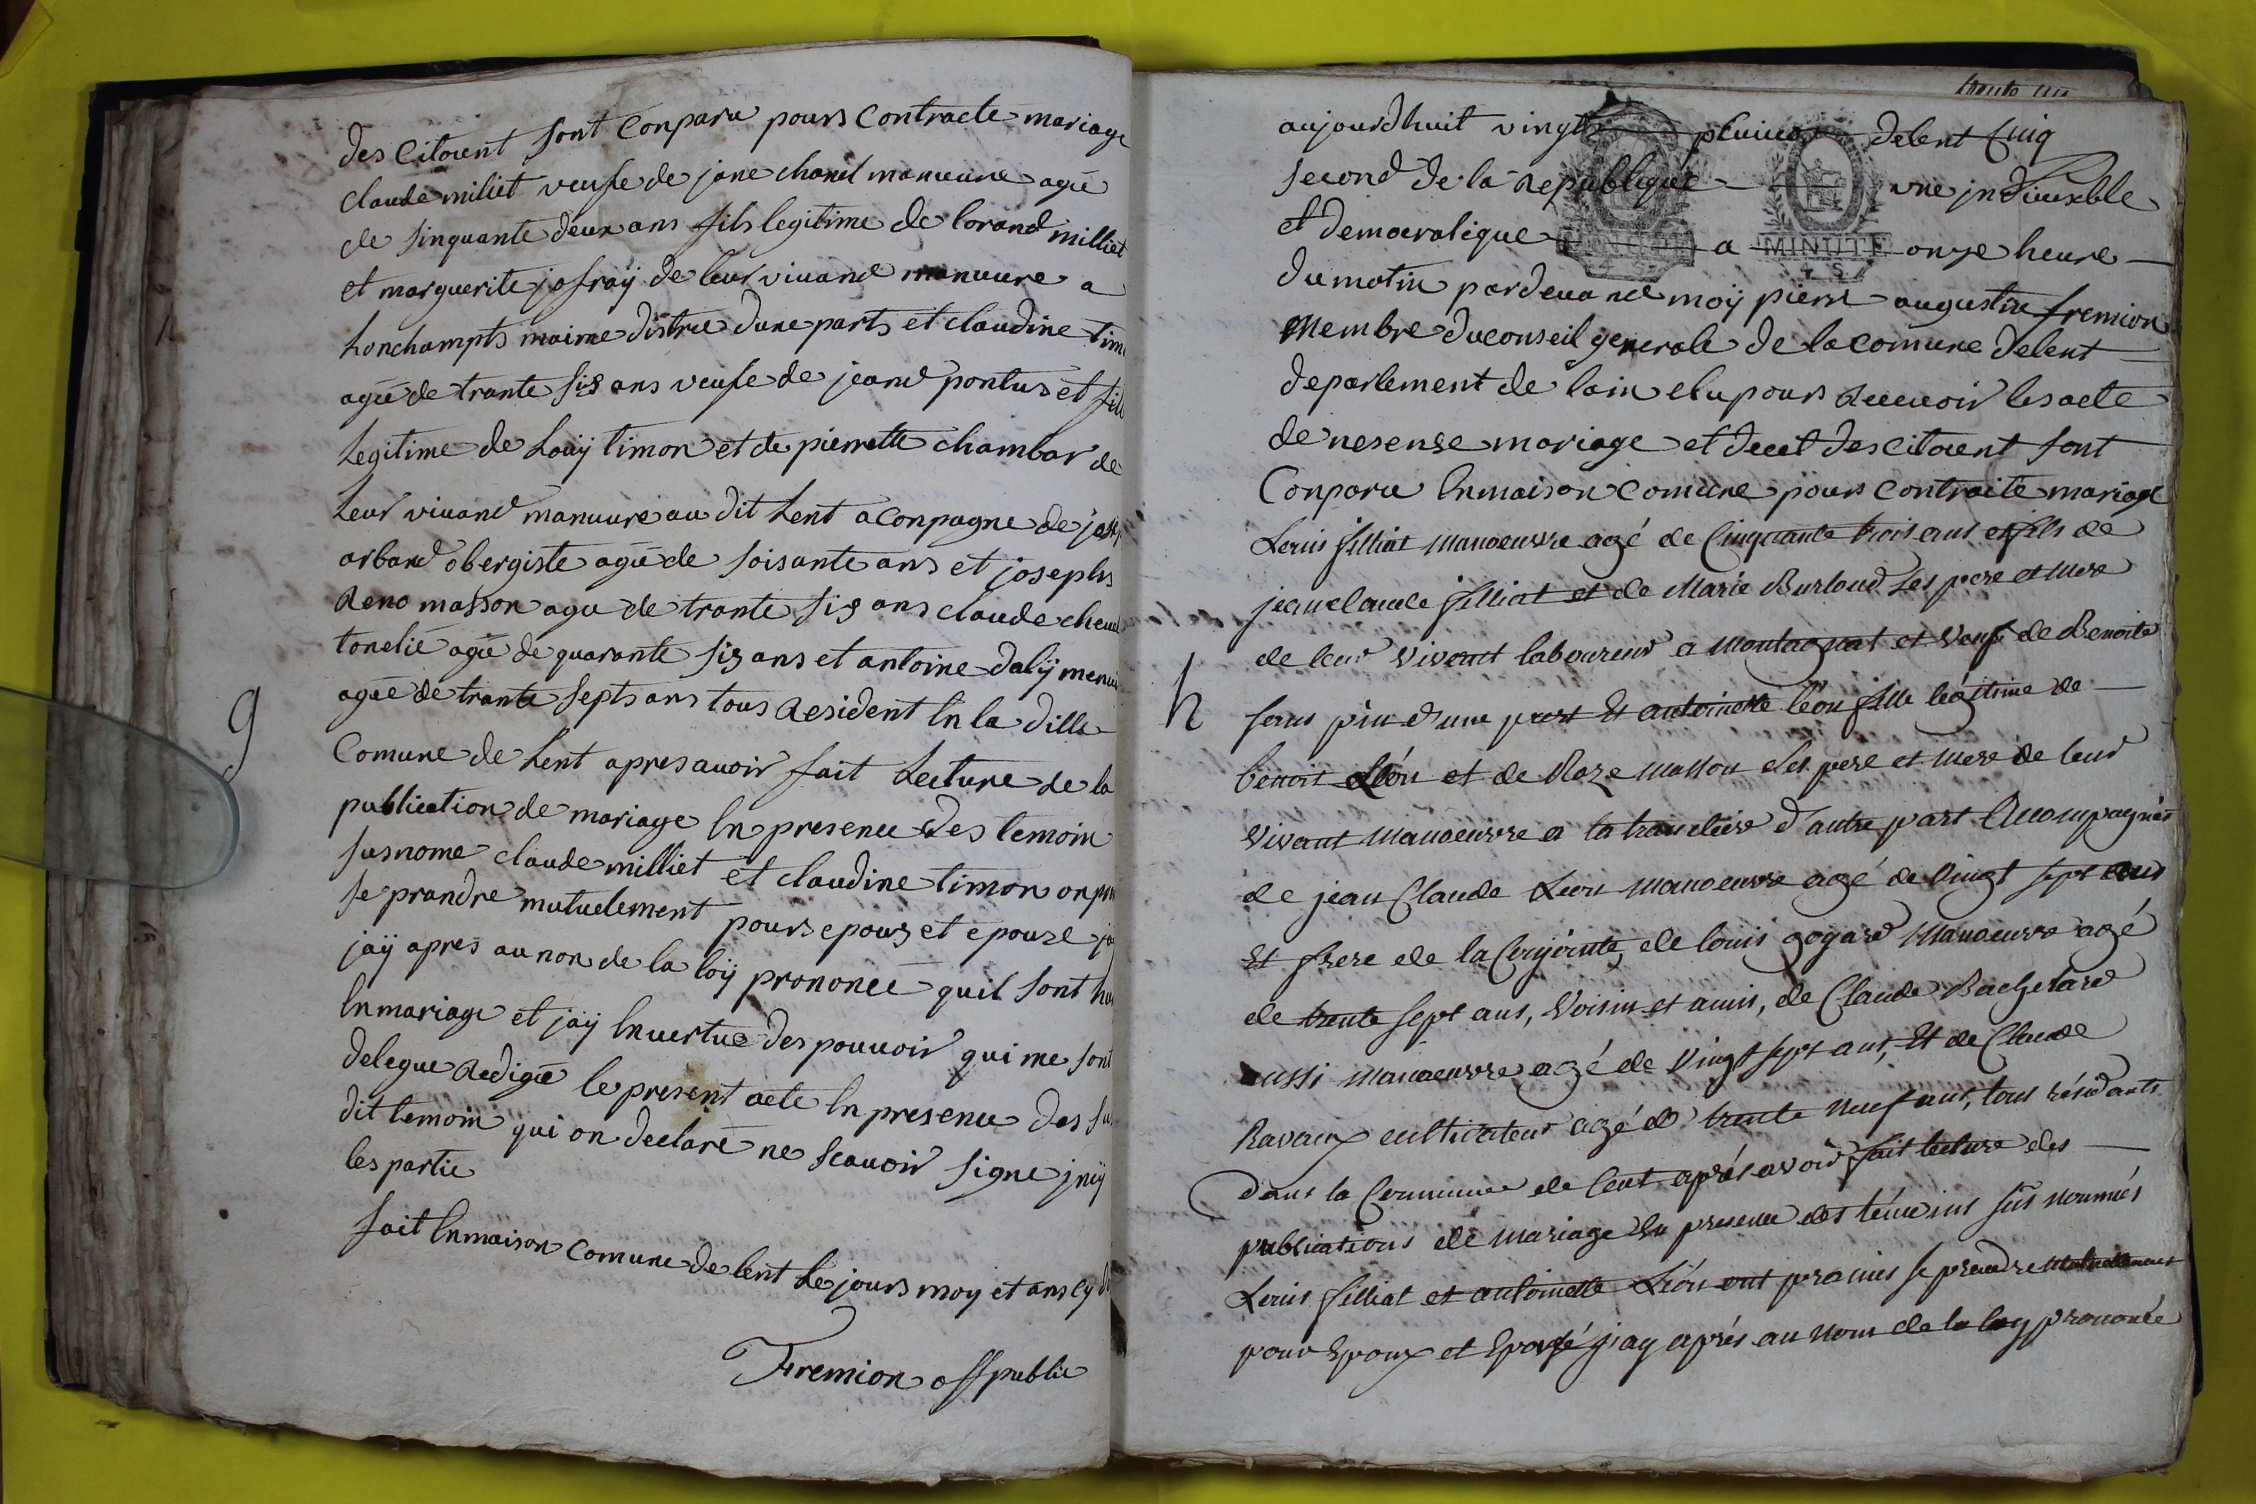 des citoient sont conparu pours contracte mariage
claude miliet veufe de jane manuure agié
de sinquante deux ans fils legitime de lorand milliet
et marguerite jofraÿ de leur vivand manuure a
honchampts maime distric dune parts et claudine
ageé de trante sis ans veufe de jeand pontus et
legitime de Louÿ timon et de pierrette chambar de
leur vivand manuure au dit Lent aconpagne de
arband obergiste agié de soisante ans et josephs
Reno masson agu de trante sis ans claude
tonelié agié de quarante sis ans et antoine dalÿ
ageé de trante septs ans tous Resident En la ditte
9
Comune de Lent apres avoir fait Lecture de la
publication de mariage En presence des temoin
susnome claude milliet et claudine timon on
se prandre mutuelement pours epous et epouse
jaÿ apres au non de la loÿ prononcé quil sont
En mariage et jaÿ En vertue des pouvoir qui me sont
delegue Redigié le present acte En presence des
dit temoin qui on declaré ne scavoir signe jnÿ
les partie
fait En maison comune de lent Le jours moy et ans
Fremion off public
aujourdhuit vingt pluviose delent Cinq
second de la Republique une jndivisible
et democratique a onze heure
MINUTE
4 S
du matin pardevand moÿ pierre augustin fremion
Membre du conseil generale de la comune delent
departement de lain elu pours Recevoir les acte
de nesense mariage et decet des citoient sont
Conparu En maison comune pours contraite mariage
Louis filliat manoeuvre agé de Cinquante trois ans et fils de
jean claude filliat et de Marie Burloud ses pere et mere
de leur vivant laboureur a Montagnat et veuf de Benoite
h
pin d'une part Et antoinette léon fille légitime de
benoit Léon et de Roze masson ses pere et mere de leur
vivant manoeuvre a d'autre part Accompagnés
de jean Claude Léon manoeuvre agé de vingt sept ans
Et frere de la Conjointe, de louis gogard manoeuvre agé
de trente sept ans, voisin et amis, de Claude Bachelard
aussi manoeuvre agé de vingt sept ans, Et de Claude
Ravaux cultivateur agé de trente neuf ans, tous résidants
dans la Commune de Lent aprés avoir fait lecture des
publications de mariage En presence des témoins sus nommés
Louis filliat et antoinette Léon ont promis se prendre mutuellement
pour Epoux et Epousé j'ay aprés au nom de la loy prononcée